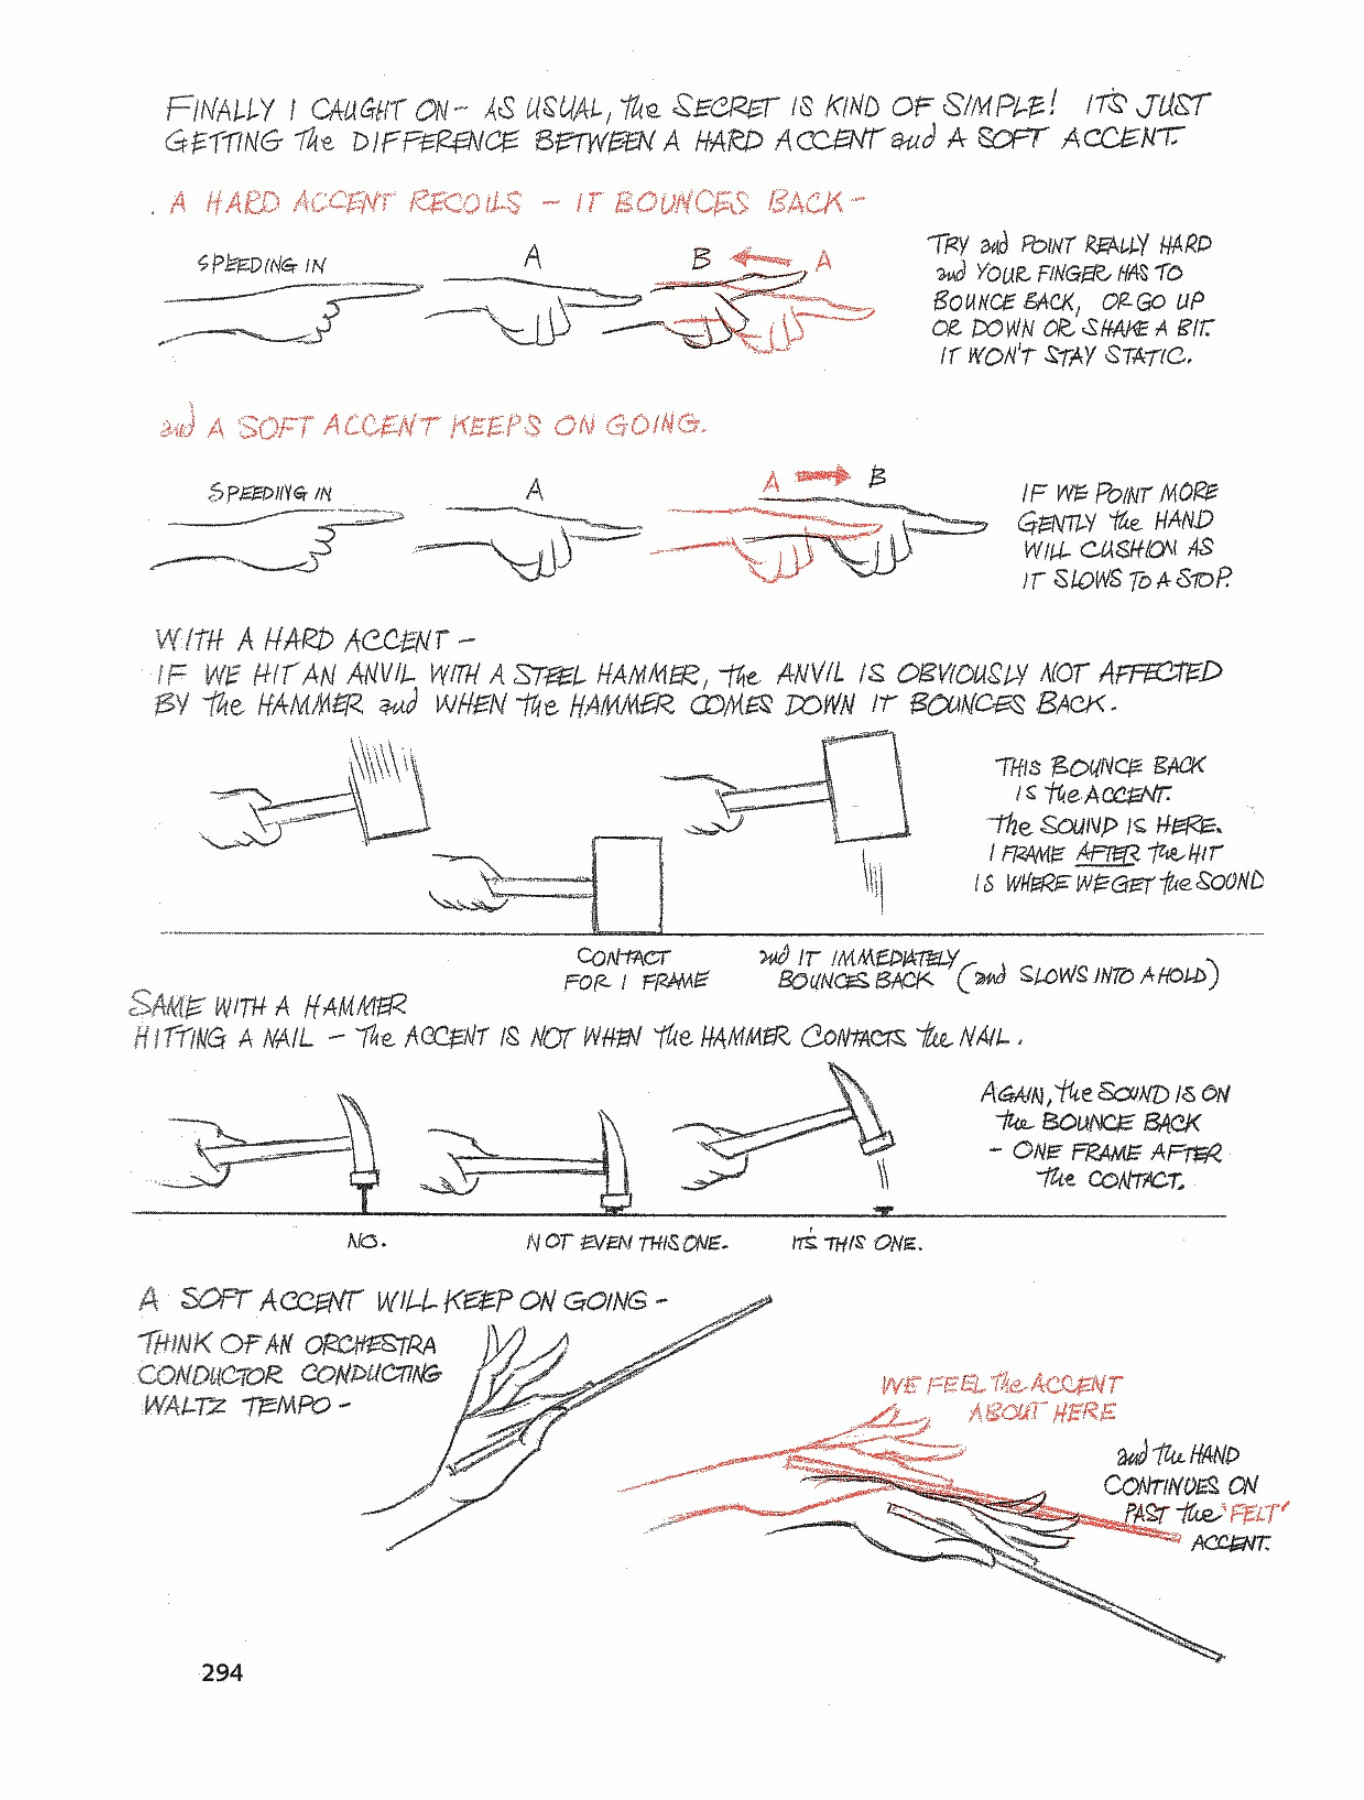 FINALLY I CAUGHT ON - AS USUAL, The SECRET IS KIND OF SIMPLE! IT'S JUST
GETTING The DIFFERENCE BETWEEN A HARD ACCENT and A SOFT ACCENT.
A HARD ACCENT RECOILS - IT BOUNCES BACK -
SPEEDING IN
A
B
A
TRY and POINT REALLY HARD
and YOUR FINGER HAS TO
BOUNCE BACK, OR GO UP
OR DOWN OR SHAKE A BIT.
IT WON'T STAY STATIC.
and A SOFT ACCENT KEEPS ON GOING.
SPEEDING IN
A
A
B
IF WE POINT MORE
GENTLY the HAND
WILL CUSHION AS
IT SLOWS TO A STOP.
WITH A HARD ACCENT -
IF WE HIT AN ANVIL WITH A STEEL HAMMER, the ANVIL IS OBVIOUSLY NOT AFFECTED
BY the HAMMER and WHEN the HAMMER COMES DOWN IT BOUNCES BACK.
THIS BOUNCE BACK
IS the ACCENT.
The SOUND IS HERE.
1 FRAME AFTER the HIT
IS WHERE WE GET the SOUND
CONTACT
FOR 1 FRAME
and IT IMMEDIATELY
BOUNCES BACK (and SLOWS INTO A HOLD)
SAME WITH A HAMMER
HITTING A NAIL - The ACCENT IS NOT WHEN the HAMMER CONTACTS the NAIL.
AGAIN, the SOUND IS ON
the BOUNCE BACK
- ONE FRAME AFTER
the CONTACT.
NO.
NOT EVEN THIS ONE.
IT'S THIS ONE.
A SOFT ACCENT WILL KEEP ON GOING -
THINK OF AN ORCHESTRA
CONDUCTOR CONDUCTING
WALTZ TEMPO -
WE FEEL The ACCENT
ABOUT HERE
and The HAND
CONTINUES ON
PAST the 'FELT'
ACCENT.
294